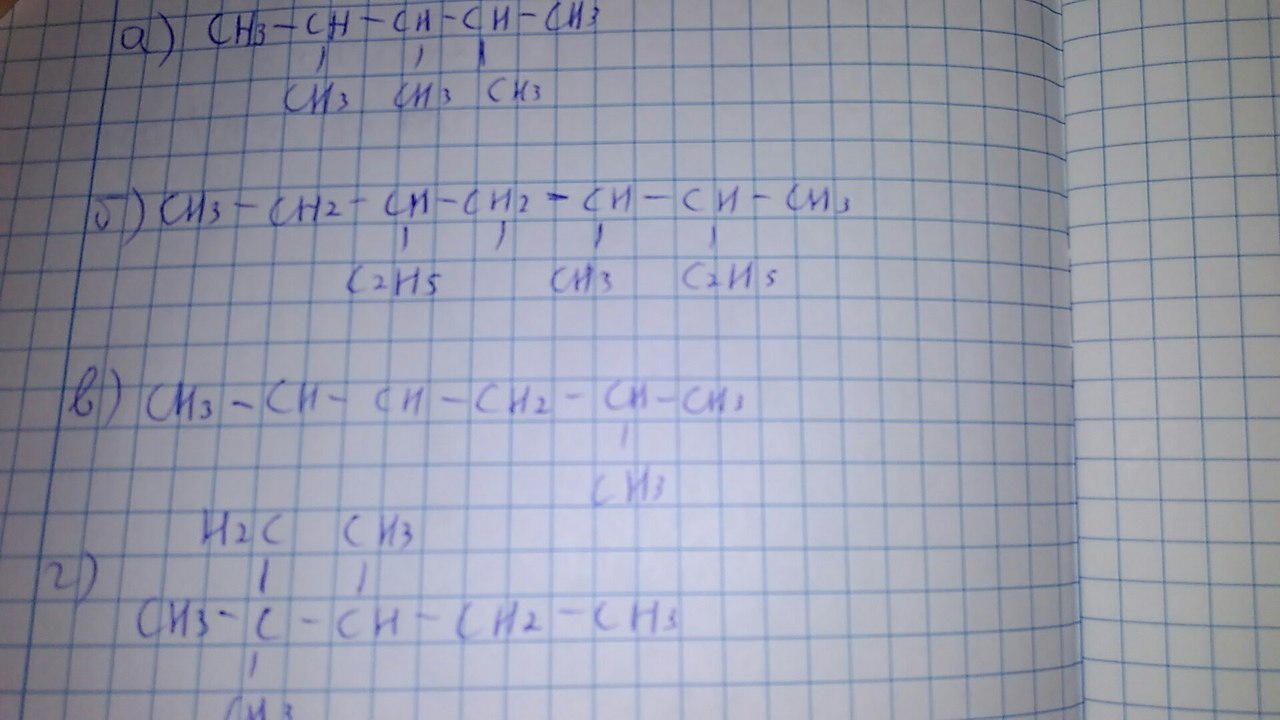 а) CH3 - CH - CH - CH - CH3
CH3 CH3 CH3
б) CH3 - CH2 - CH - CH2 - CH - CH - CH3
C2H5 CH3 C2H5
в) CH3 - CH - CH - CH2 - CH - CH3
CH3
H2C CH3
г)
CH3 - C - CH - CH2 - CH3
CH3